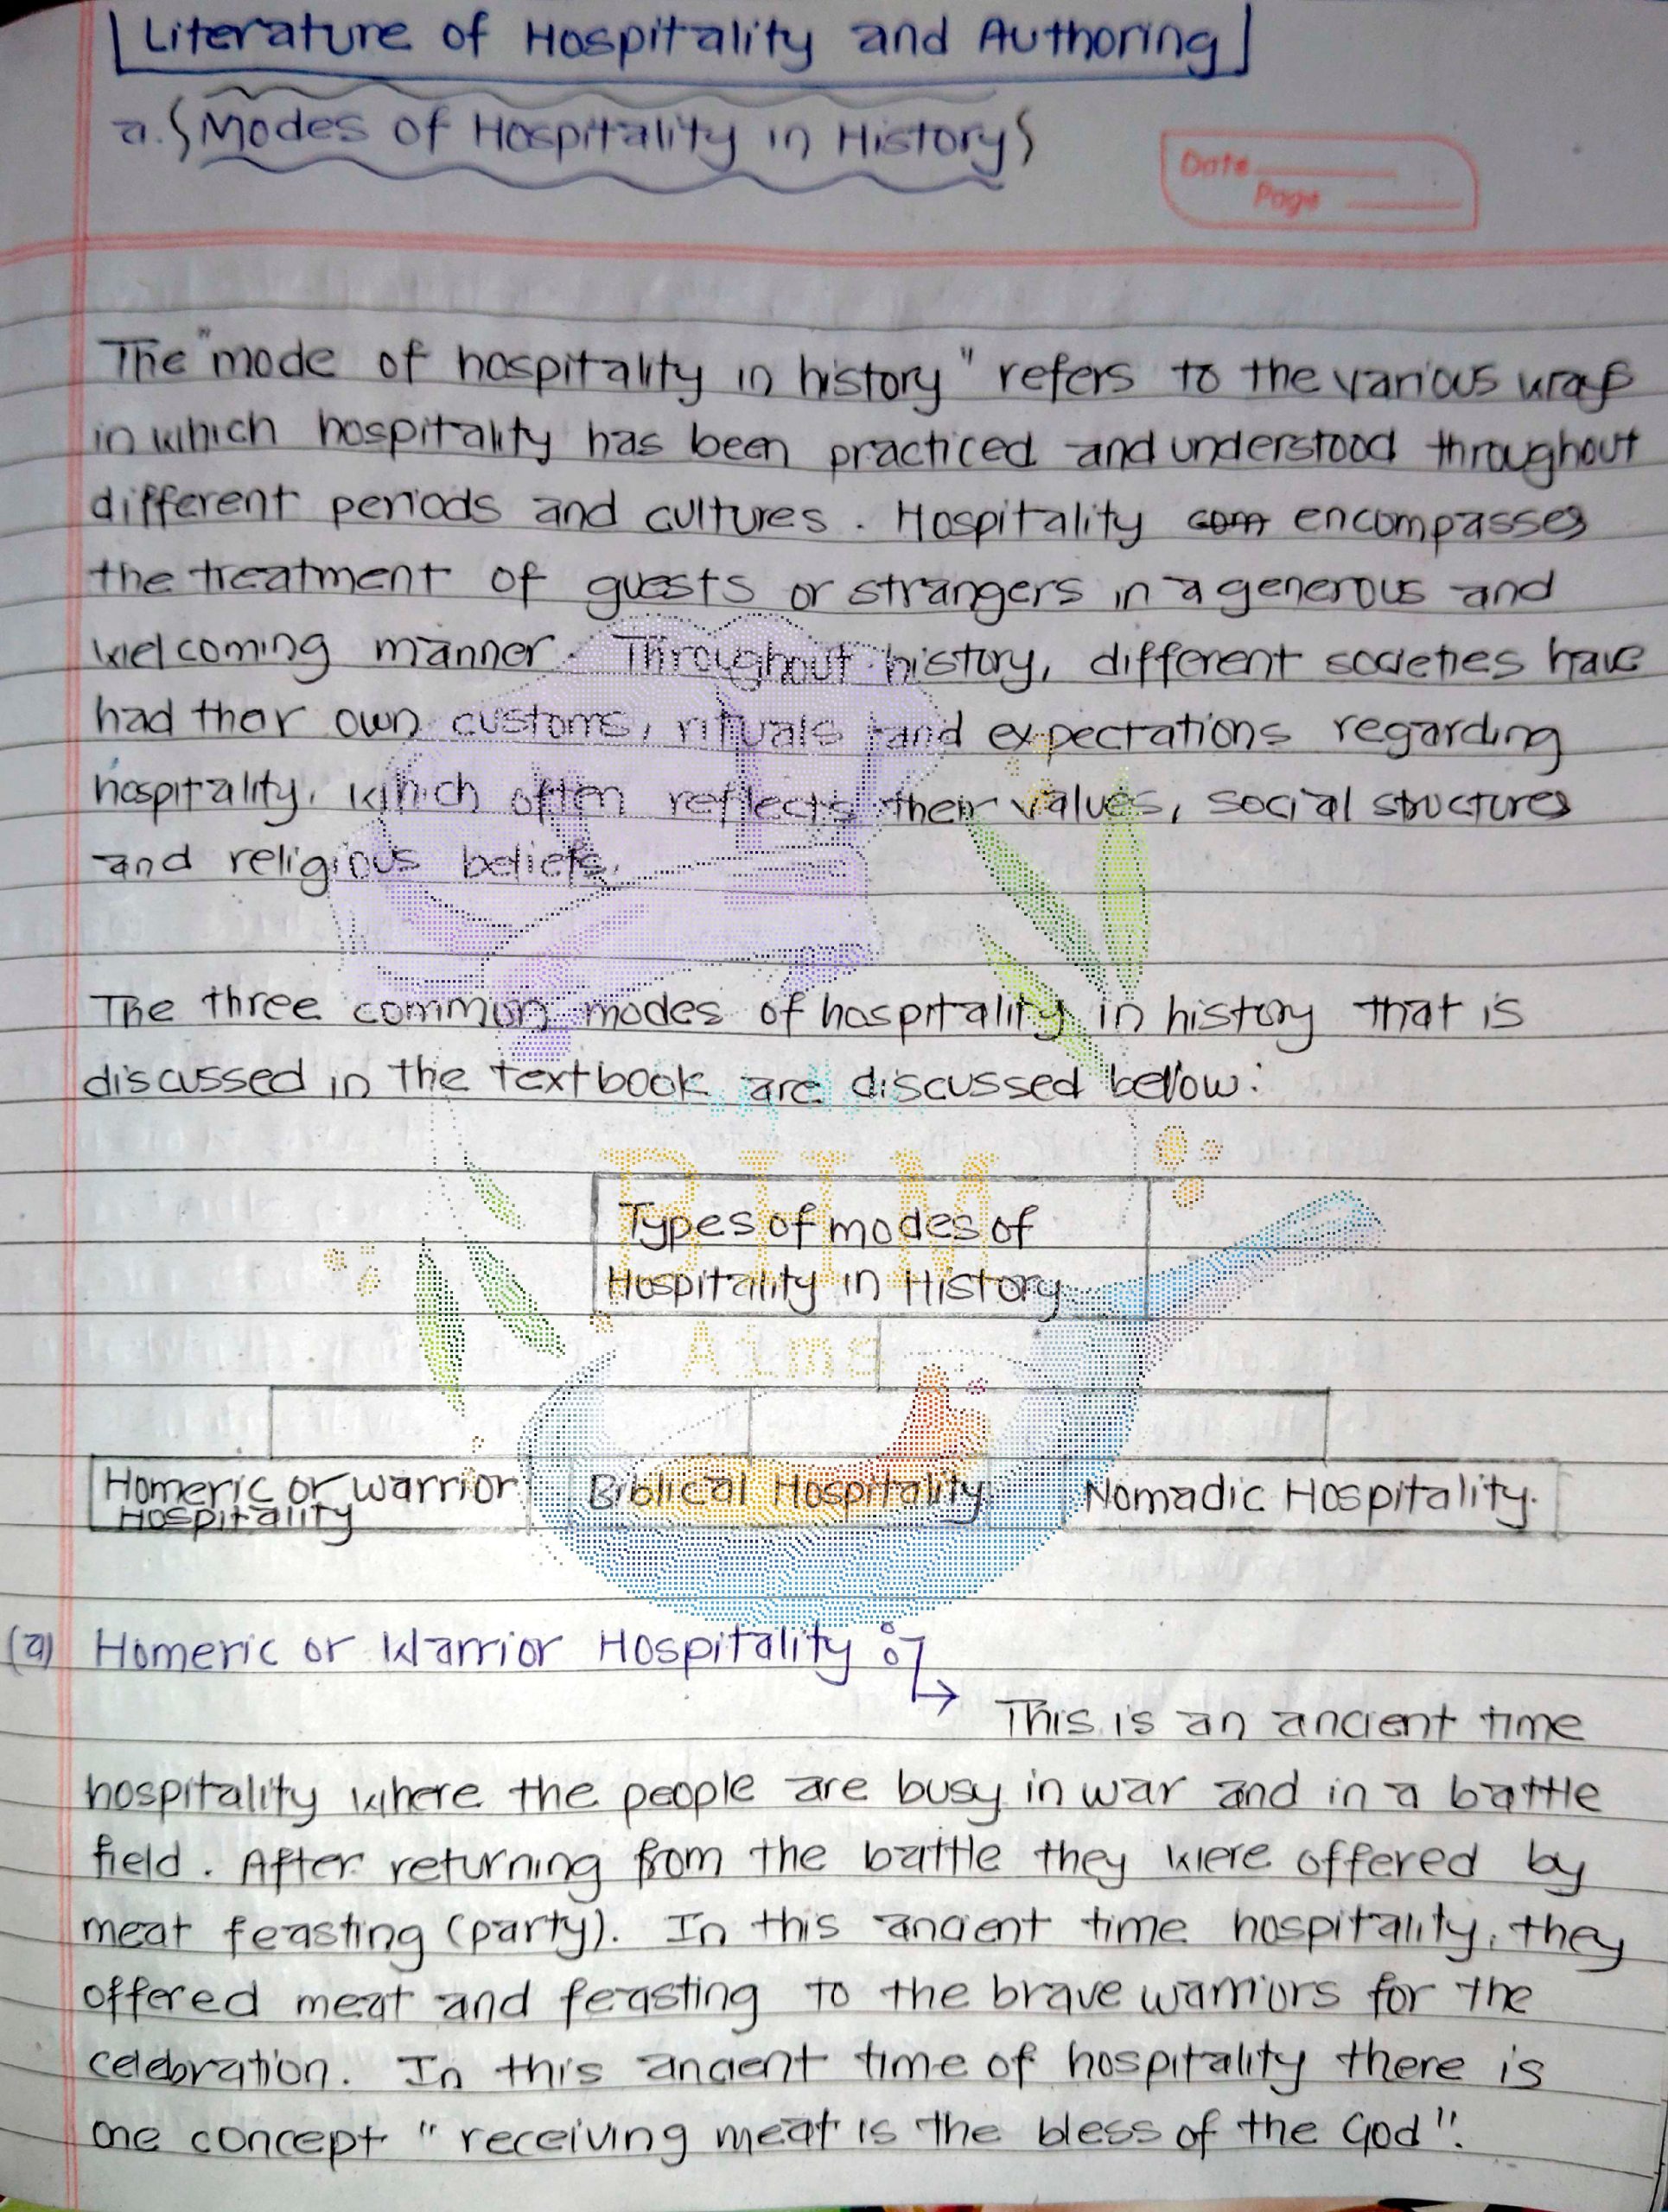 Literature of Hospitality and Authoring
a. Modes of Hospitality in History
Date
Page
The "mode of hospitality in history" refers to the various ways
in which hospitality has been practiced and understood throughout
different periods and cultures. Hospitality com encompasses
the treatment of guests or strangers in a generous and
welcoming manner. Throughout history, different societies have
had their own customs, rituals and expectations regarding
hospitality, which often reflects their values, social structures
and religious beliefs.
The three common modes of hospitality in history that is
discussed in the textbook are discussed bellow:
BHM
Types of modes of
Hospitality in History
Aims
Homeric or warrior
Hospitality
Biblical Hospitality
Nomadic Hospitality.
(a) Homeric or Warrior Hospitality :
→ This is an ancient time
hospitality where the people are busy in war and in a battle
field. After returning from the battle they were offered by
meat feasting (party). In this ancient time hospitality, they
offered meat and feasting to the brave warriors for the
celebration. In this ancient time of hospitality there is
one concept "receiving meat is the bless of the God".